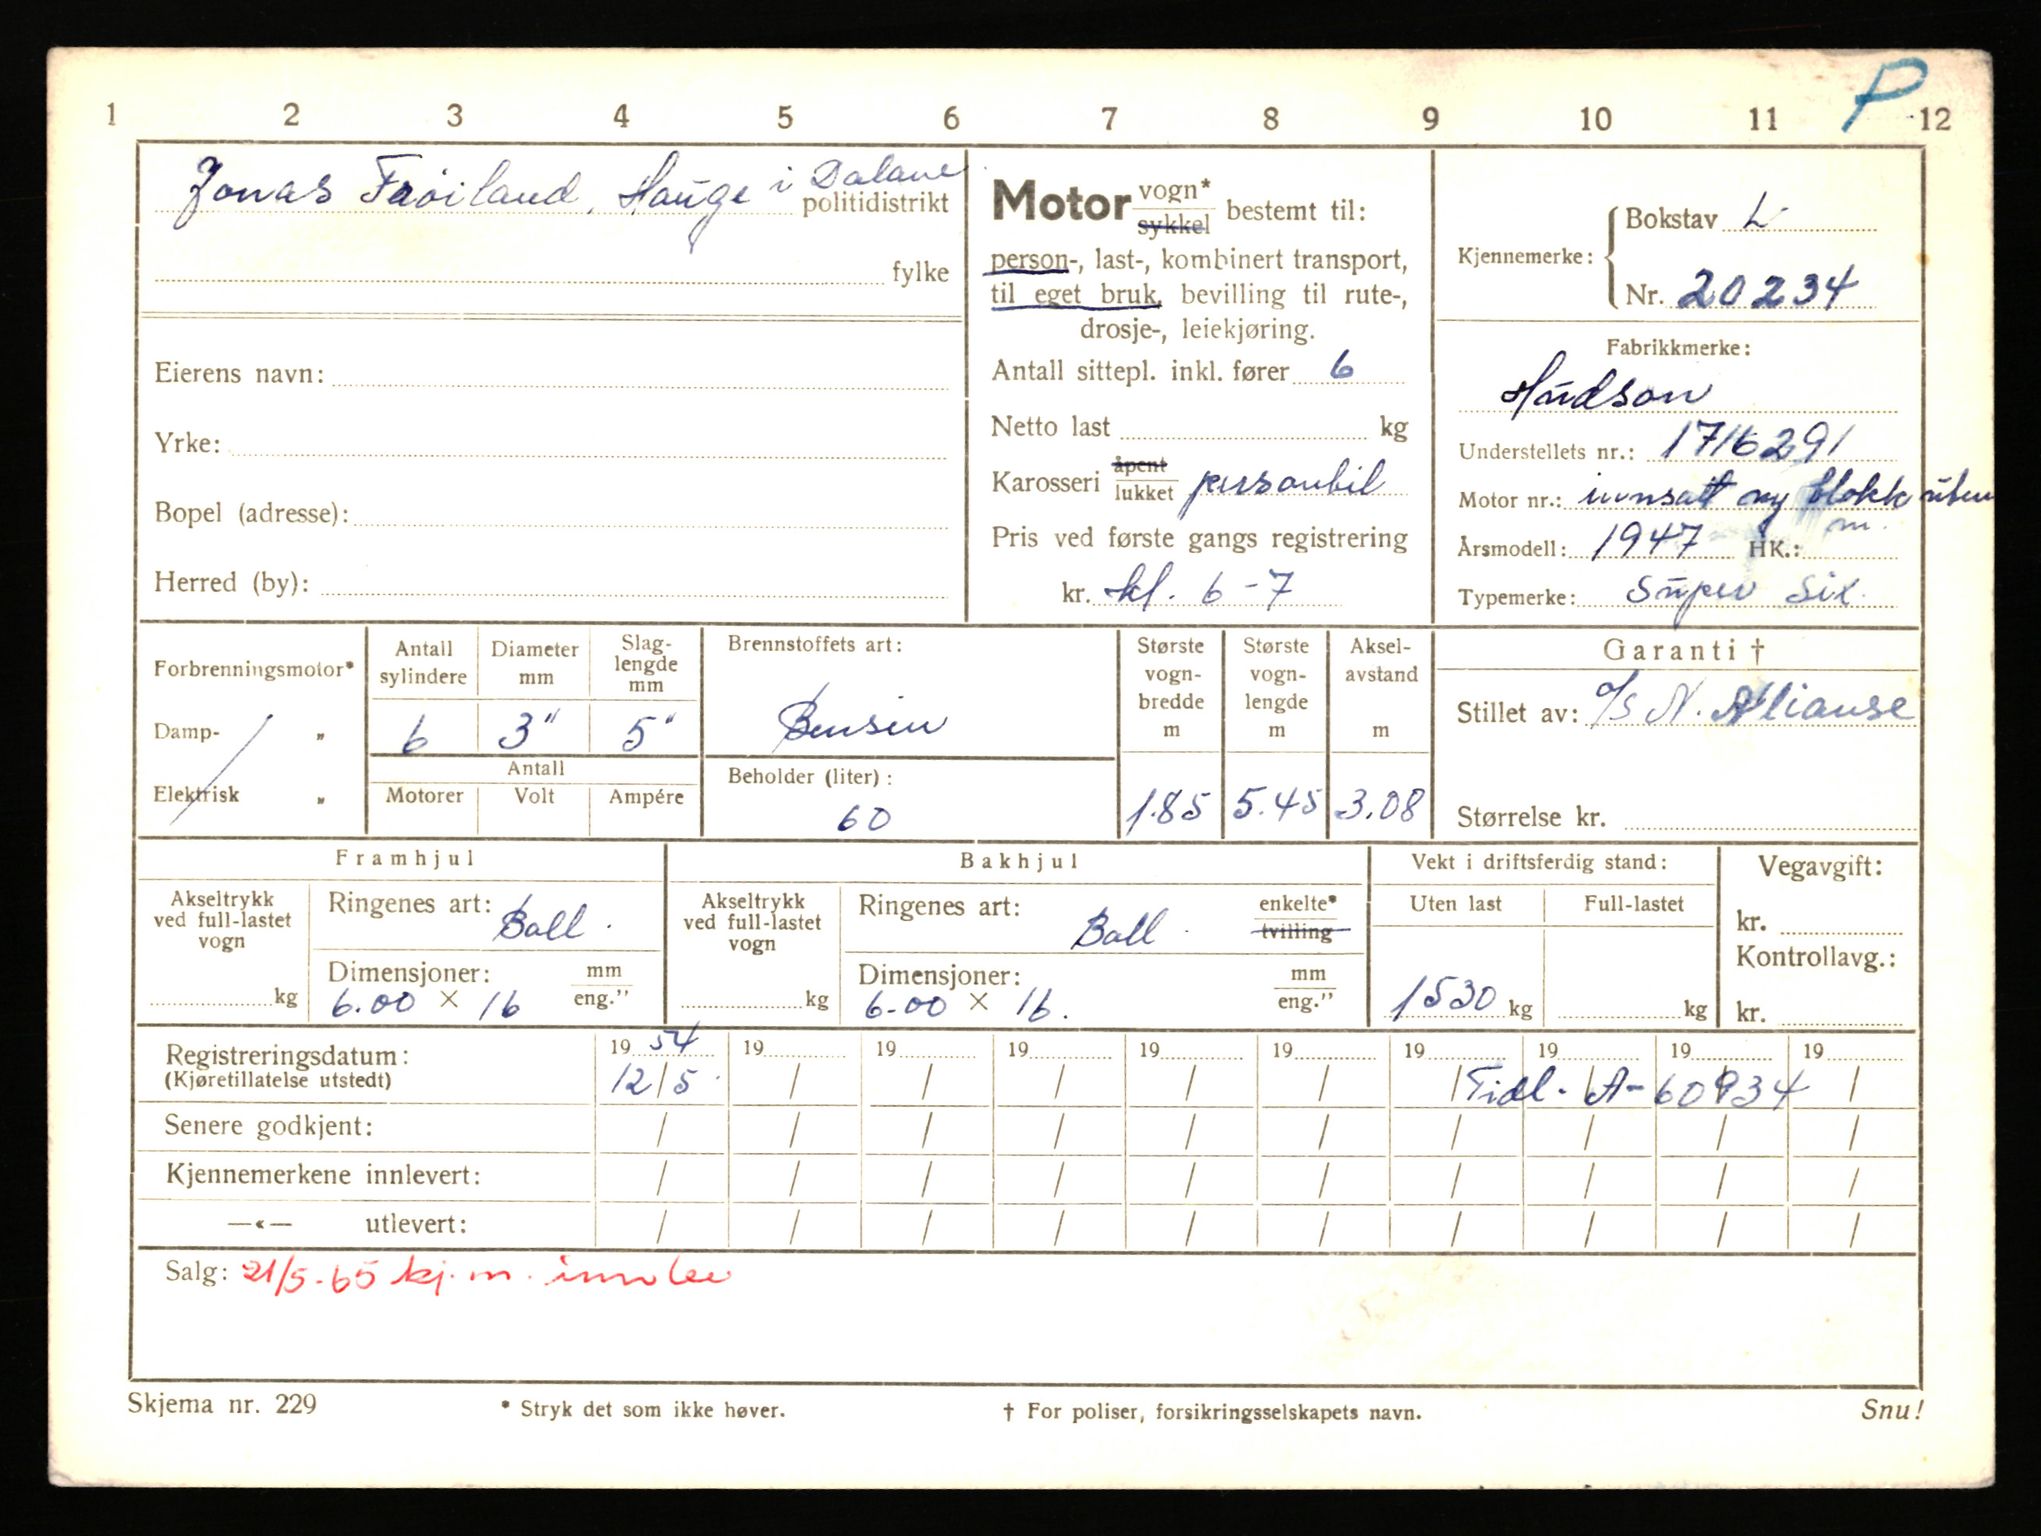 P
1 2 3 4 5 6 7 8 9 10 11 12
Jonas Frøiland, Hauge i Dalane politidistrikt
fylke
Eierens navn:
Yrke:
Bopel (adresse):
Herred (by):
Motor vogn* sykkel bestemt til:
person-, last-, kombinert transport,
til eget bruk, bevilling til rute-,
drosje-, leiekjøring.
Antall sittepl. inkl. fører 6
Netto last kg
Karosseri åpent lukket personbil
Pris ved første gangs registrering
kr. kl. 6-7
Kjennemerke: Bokstav L
Nr. 20234
Fabrikkmerke:
Hudson
Understellets nr.: 1716291
Motor nr.: innsatt ny blokk uten
m.
Årsmodell: 1947 HK.:
Typemerke: Super Six
Forbrenningsmotor*
Damp- „
Elektrisk „
Antall sylindere 6
Diameter mm 3"
Slag-lengde mm 5"
Antall
Motorer Volt Ampére
Brennstoffets art:
Bensin
Beholder (liter):
60
Største vogn-bredde m 1.85
Største vogn-lengde m 5.45
Aksel-avstand m 3.08
Garanti †
Stillet av: a/s N. Alianse
Størrelse kr.
Framhjul
Akseltrykk ved full-lastet vogn kg
Ringenes art: Ball.
Dimensjoner: mm eng."
6.00 × 16
Bakhjul
Akseltrykk ved full-lastet vogn kg
Ringenes art: Ball. enkelte* tvilling
Dimensjoner: mm eng."
6-00 × 16.
Vekt i driftsferdig stand:
Uten last Full-lastet
1530 kg kg
Vegavgift:
kr.
Kontrollavg.:
kr.
Registreringsdatum: 19 54 19 19 19 19 19 19 19 19 19
(Kjøretillatelse utstedt) 12/5. / / / / / / Tidl. A-60934 /
Senere godkjent: / / / / / / / / / /
Kjennemerkene innlevert: / / / / / / / / / /
—«— utlevert: / / / / / / / / / /
Salg: 21/5-65 kj.m. innlev
Skjema nr. 229 * Stryk det som ikke høver. † For poliser, forsikringsselskapets navn. Snu!